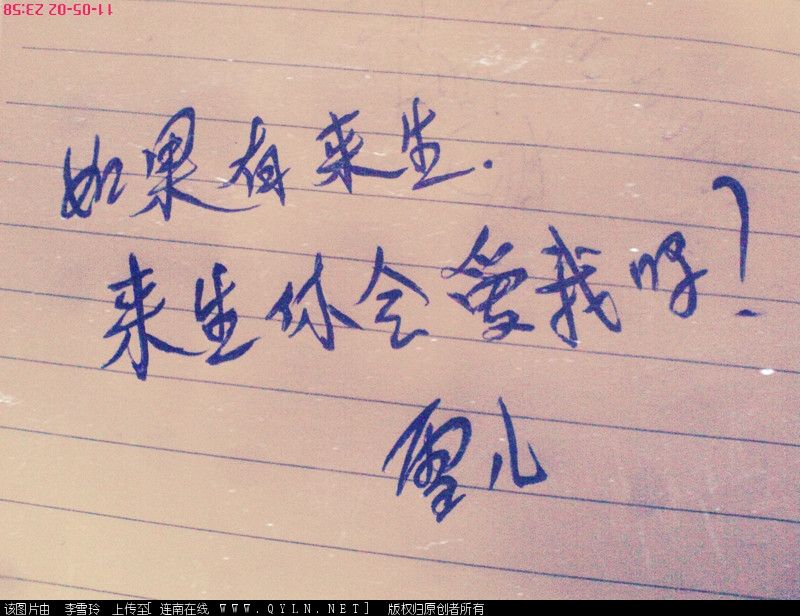 11-05-02 23:58
如果有来生.
来生你会爱我吗?
儿
该图片由 李雪玲 上传至[ 连南在线 WWW.QYLN.NET] 版权归原创者所有